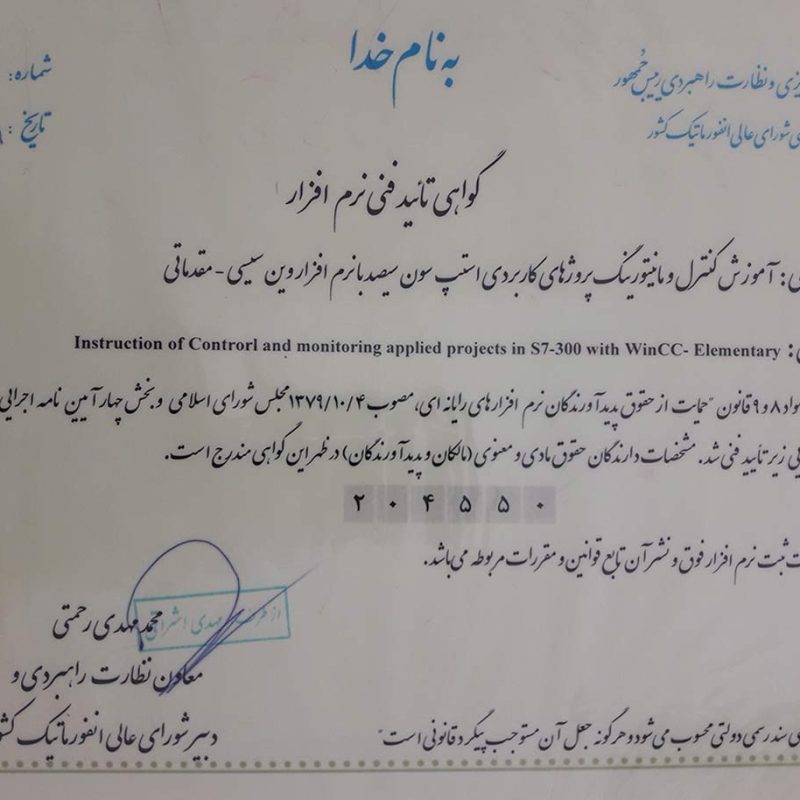 به نام خدا
شماره:
تاریخ:
و نظارت راهبردی رییس جمهور
شورای عالی انفورماتیک کشور
گواهی تائید فنی نرم افزار
: آموزش کنترل و مانیتورینگ پروژهای کاربردی استپ سون سیصد با نرم افزار وین سیسی - مقدماتی
: Instruction of Controrl and monitoring applied projects in S7-300 with WinCC- Elementary
۸ و ۹ قانون "حمایت از حقوق پدیدآورندگان نرم افزارهای رایانه ای، مصوب ۱۳۷۹/۱۰/۴ مجلس شورای اسلامی و بخش چهار آیین نامه اجرایی
زیر تأیید فنی شد. مشخصات دارندگان حقوق مادی و معنوی (مالکان و پدیدآورندگان) در ظهر این گواهی مندرج است.
۲۰۴۵۵۰
ثبت نرم افزار فوق و نشر آن تابع قوانین و مقررات مربوطه می‌باشد.
از طرف مهدی
محمد مهدی رحمتی
معاون نظارت راهبردی و
دبیر شورای عالی انفورماتیک
سند رسمی دولتی محسوب می‌شود و هرگونه جعل آن مستوجب پیگرد قانونی است"